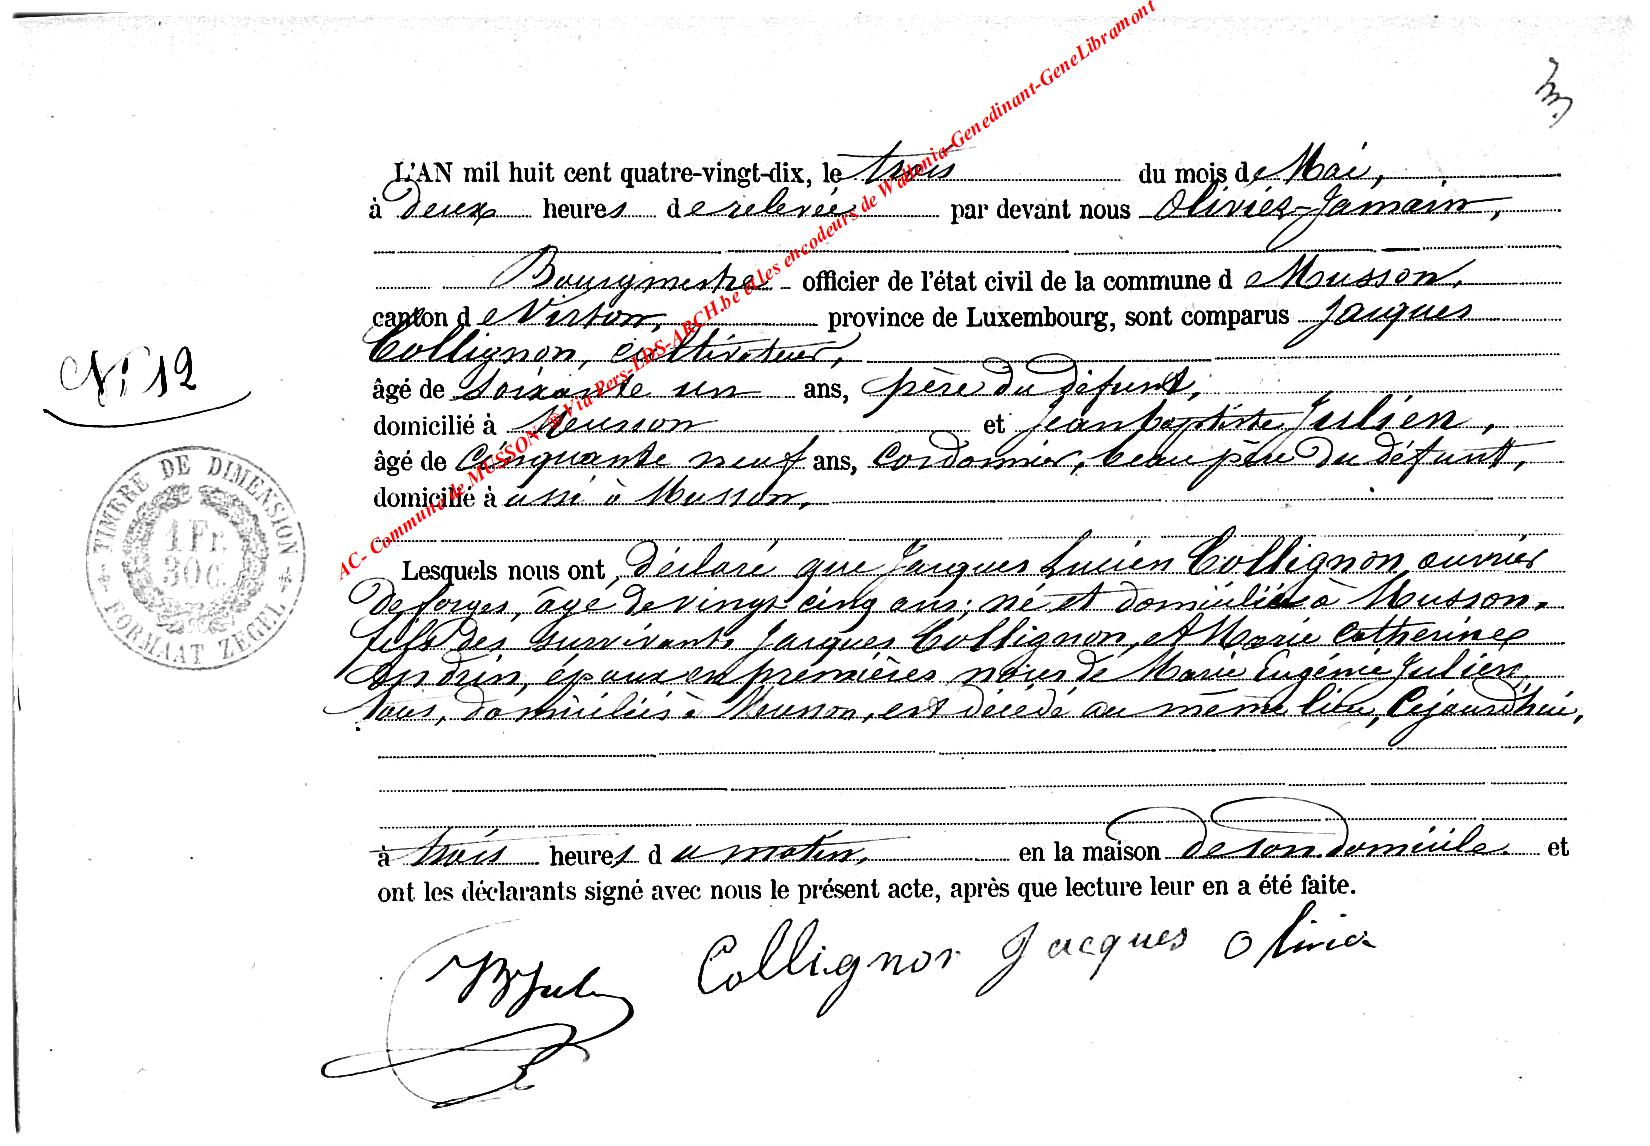 L'AN mil huit cent quatre-vingt-dix, le trois du mois de Mai,
à deux heures de relevée par devant nous Olivier-Jamain,
Bourgmestre officier de l'état civil de la commune de Musson,
canton de Virton, province de Luxembourg, sont comparus Jacques
Collignon, cultivateur,
âgé de soixante un ans, père du défunt,
N° 12
domicilié à Musson et Jean baptiste Julien,
âgé de Cinquante neuf ans, Cordonnier, beau père du défunt,
domicilié à assi à Musson,
Lesquels nous ont déclaré que Jacques Lucien Collignon, ouvrier
de forges, âgé de vingt cinq ans, né et domicilié à Musson,
fils des survivants Jacques Collignon, et Marie Catherine
époux en premières noces de Marie Eugénie Julien,
tous, domiciliés à Musson, est décédé au même lieu, Cejourd'hui,
à trois heures du matin, en la maison de son domicile et
ont les déclarants signé avec nous le présent acte, après que lecture leur en a été faite.
Collignon Jacques Olivier
TIMBRE DE DIMENSION
1 Fr.
30 C.
FORMAAT ZEGEL
AC- Commune de MUSSON ® Via Pers-LDS-ARCH.be et les encodeurs de Wallonia-Genedinant-GeneLibramont